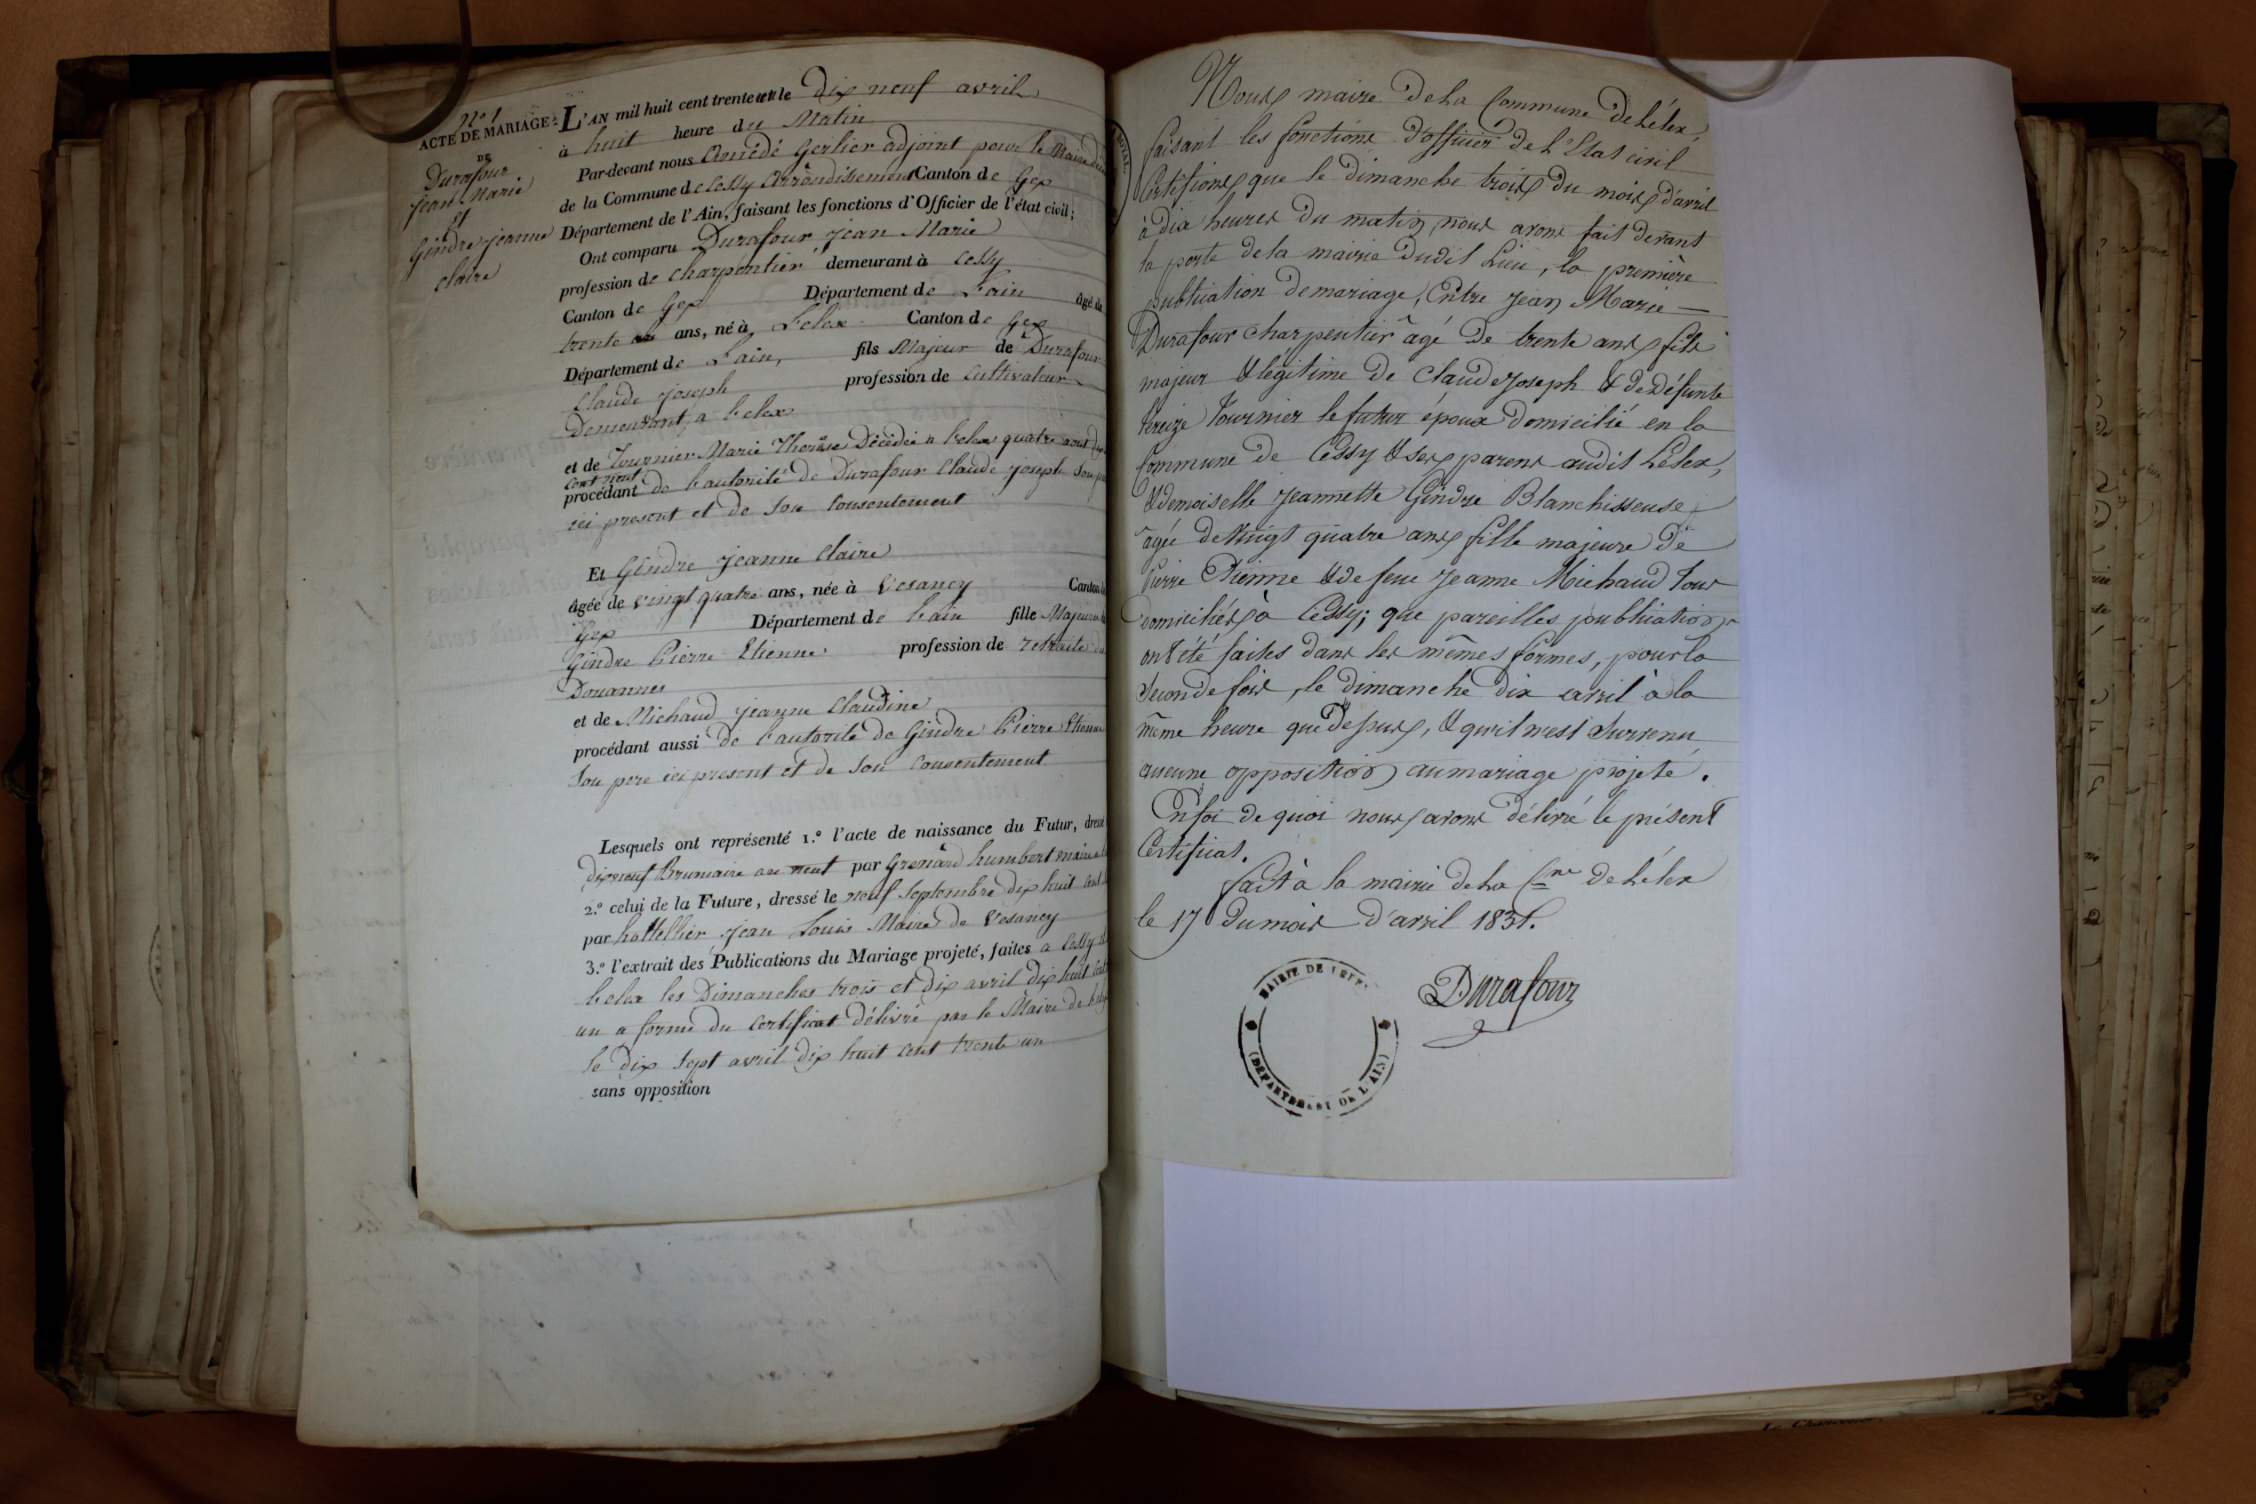 N° 1
ACTE DE MARIAGE
DE
Durafour
Jean Marie
et
Gindre jeanne
claire
L'AN mil huit cent trente un le dix neuf avril
à huit heure du Matin
Par-devant nous Amédé Gerlier adjoint pour le Maire
de la Commune de Cessy Arrondissement Canton de Gex
Département de l'Ain, faisant les fonctions d'Officier de l'état civil;
Ont comparu Durafour, Jean Marie
profession de charpentier demeurant à Cessy
Canton de Gex Département de Lain âgé de
trente ans, né à Lelex Canton de Gex
Département de Lain, fils Majeur de Durafour
Claude joseph profession de Cultivateur
Demeurant, a Lelex
et de Tournier Marie Therèse Décédée a Lelex quatre aout
cent neuf
procédant de l'autorité de Durafour Claude joseph Son
ici present et de Son Consentement
Et Gindre Jeanne Claire
âgée de vingt quatre ans, née à Vesancy Canton
Gex Département de Lain fille Majeure
Gindre Pierre Etienne profession de retraité
Douannes
et de Michaud jeanne Claudine
procédant aussi de l'autorité de Gindre Pierre Etienne
Son pere ici present et de Son Consentement
Lesquels ont représenté 1.° l'acte de naissance du Futur, dressé
dix neuf Brumaire an neuf par Grenard humbert maire
2.° celui de la Future, dressé le neuf Septembre dix huit cent
par hottellier jean Louis Maire de Vesancy
3.° l'extrait des Publications du Mariage projeté, faites a Cessy
Lelex les Dimanches trois et dix avril dix huit cent
un a forme du Certificat délivré par le Maire de Lelex
le dix Sept avril dix huit cent trente un
sans opposition
Nous maire de la Commune de Lélex,
faisant les fonctions d'officier de l'Etat civil
Certifions que le dimanche trois du mois d'avril
à dix heures du matin, nous avons fait devant
la porte de la mairie dudit Lieu, la première
publication de mariage, Entre Jean Marie
Durafour charpentier âgé de trente ans fils
majeur & légitime de Claude Joseph & de Défunte
Tournier le futur époux domicilié en la
Commune de Cessy & ses parens audit Lélex,
& demoiselle Jeannette Gindre Blanchisseuse
âgée de Vingt quatre ans fille majeure de
Pierre Etienne & de feue Jeanne Michaud Tous
domiciliés à Cessy; que pareilles publications
ont été faites dans les mêmes formes, pour la
seconde fois, le dimanche dix avril à la
même heure que Dessus, & qu'il n'est survenu
aucune opposition au mariage projeté.
En foi de quoi nous avons délivré le présent
Certificat.
fait à la mairie de la Cne de Lélex
le 17 du mois d'avril 1831.
Durafour
MAIRIE DE
(DÉPARTEMENT DE L'AIN)